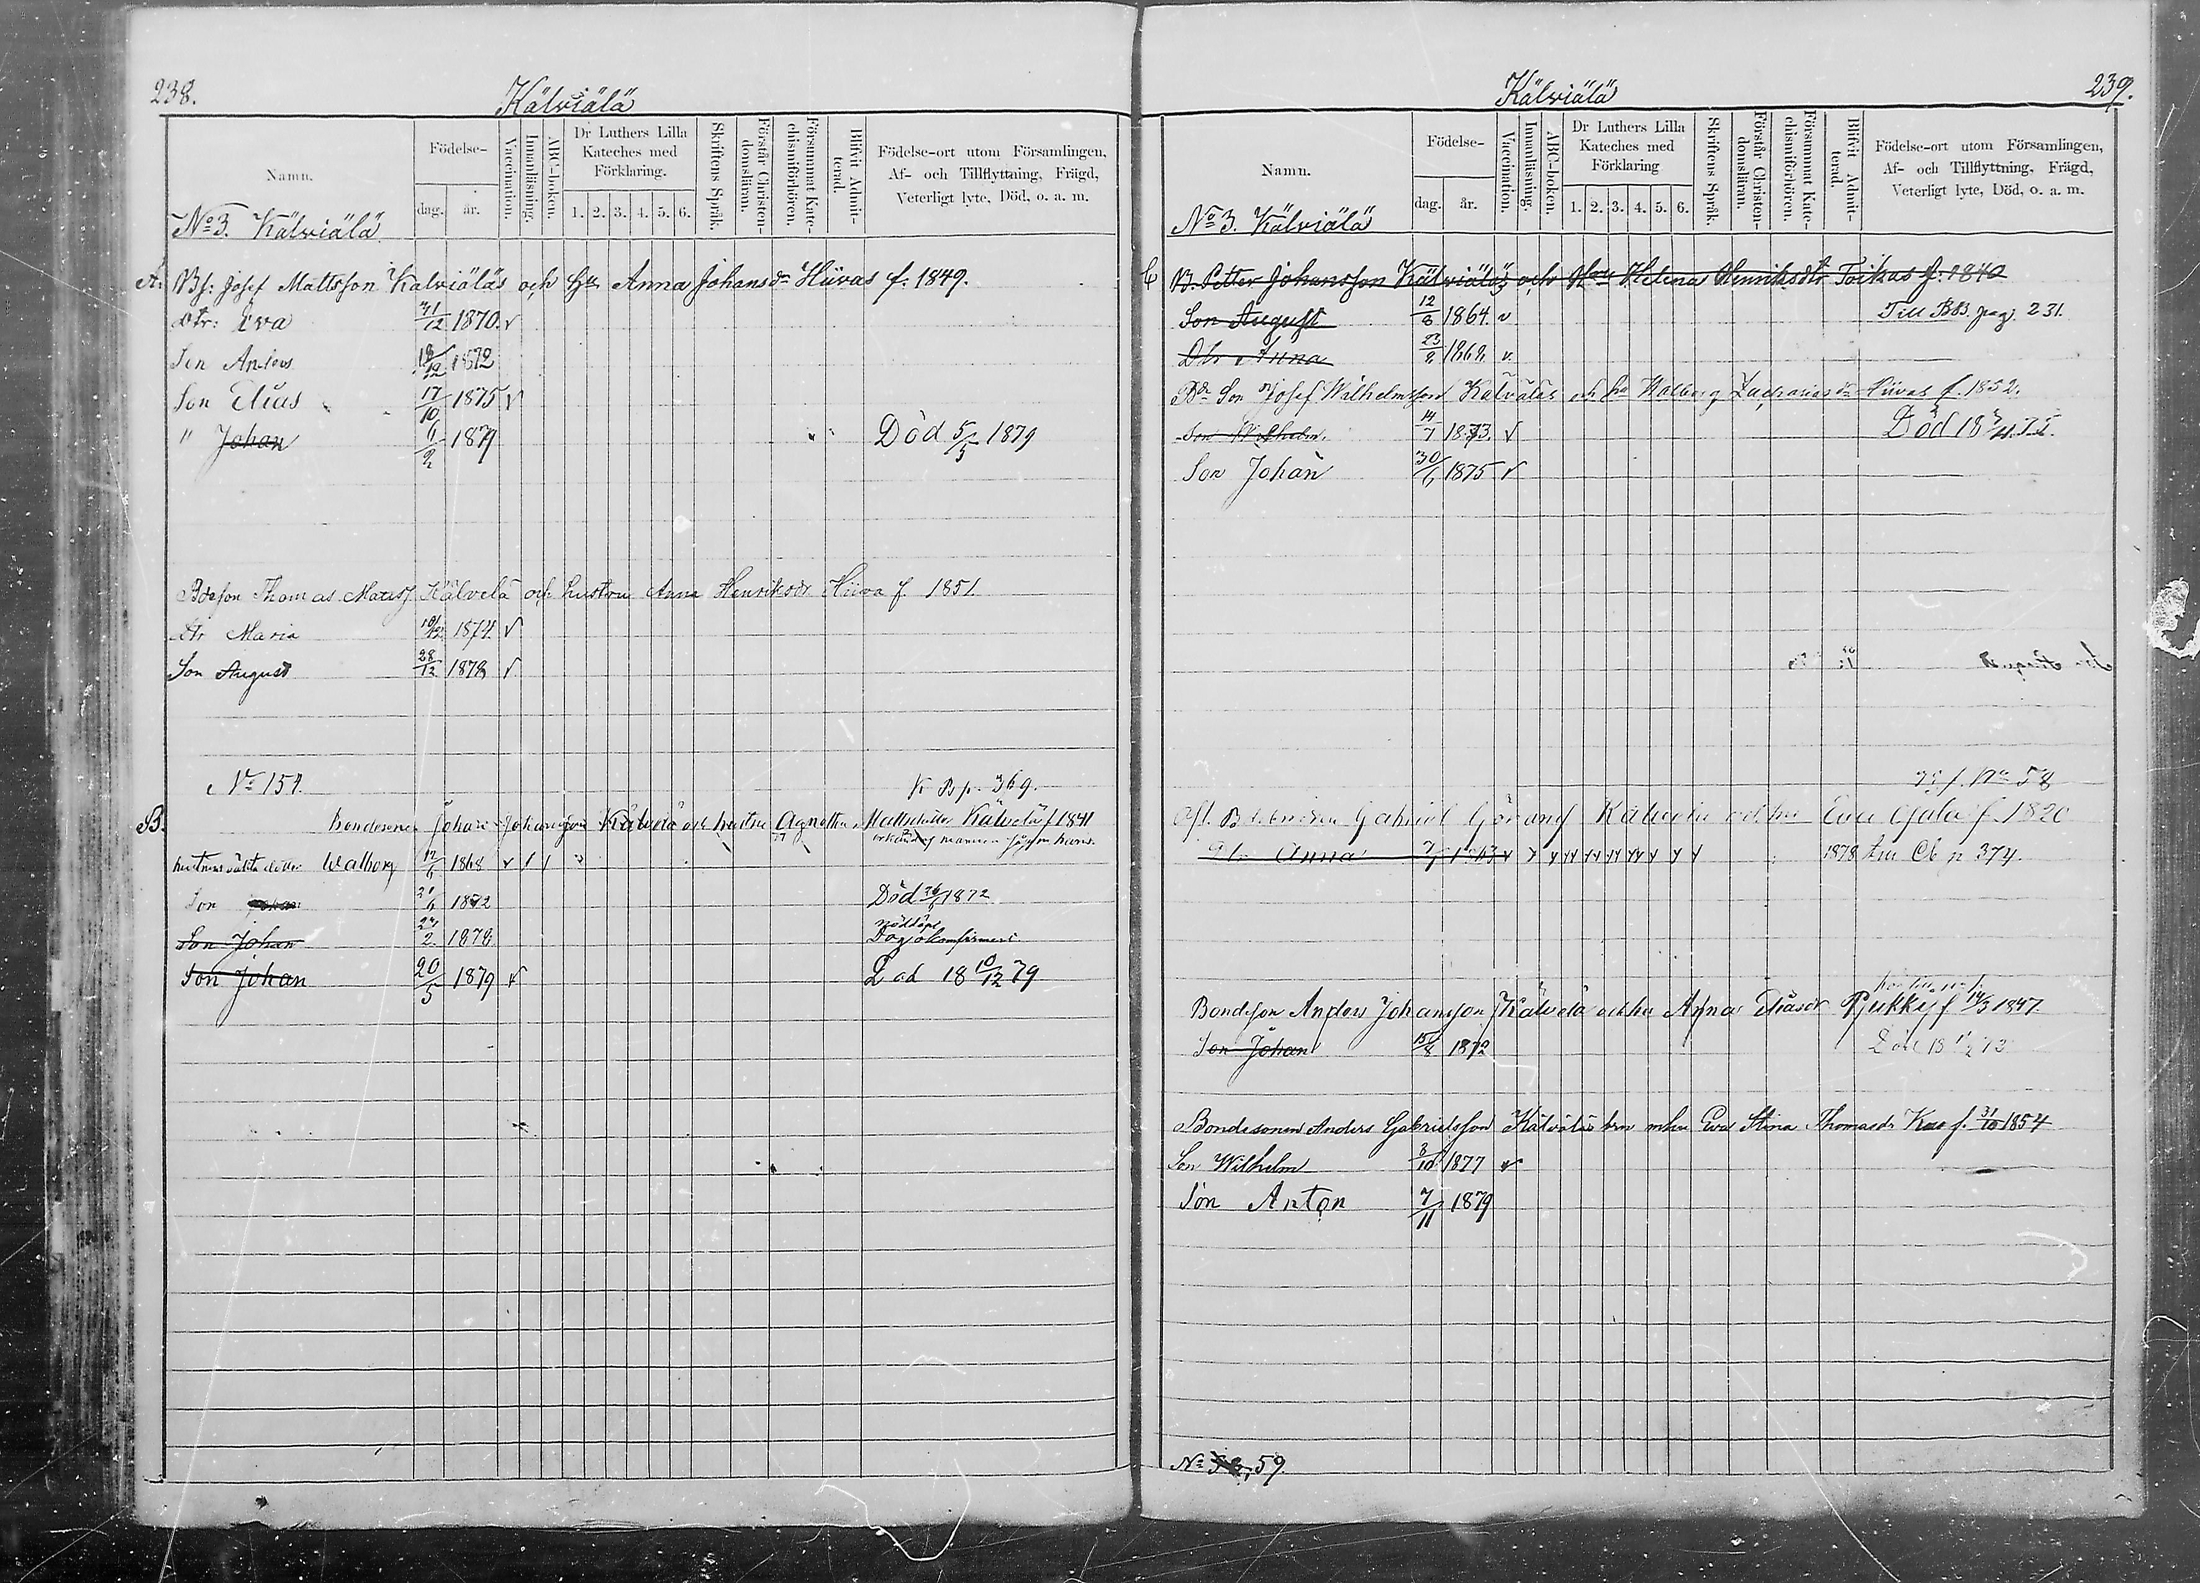 238.
Kälviälä
Namn.
Födelse-
dag.
år.
Vaccination.
Innanläsning.
ABC-boken.
Dr Luthers Lilla Kateches med Förklaring.
1. 2. 3. 4. 5. 6.
Skriftens Språk.
Förstår Christendomsläran.
Försummat Katechismiförhören.
Blifvit Admitterad.
Födelse-ort utom Församlingen,
Af- och Tillflyttning, Frägd,
Veterligt lyte, Död, o. a. m.
No 3. Kälviälä
A. Josef Mattsson Kälviäläs och Anna Johansdr Hiivas f. 1849.
Dtr: Eva 31/12 1870. v
Son Anders 18/12 1872
Son Elias 17/10 1875 v
" Johan 1879 Död 5/5 1879
Bdeson Thomas Matts. Kälvelä och hustru Anna Henriksdr Hiiva f. 1851
dtr Maria 1874. v
Son August 28/12 1878 v
No 154.
K B p. 369.
B. Bondesonen Johan Johansson Kälvelä och hustru Agnetha Mattsdotter Kälvelä f 1841
hustruns oäkta dotter Walborg 12/6 1868 v
Son Johan 1872 Död 1872
nöddöpt
Son Johan 27/2 1878 Dog okonfirmerad
Son Johan 20/5 1879 v Död 18 10/12 79
239.
Kälviälä
Namn.
Födelse-
dag.
år.
Vaccination.
Innanläsning.
ABC-boken.
Dr Luthers Lilla Kateches med Förklaring
1. 2. 3. 4. 5. 6.
Skriftens Språk.
Förstår Christendomsläran.
Försummat Katechismiförhören.
Blifvit Admitterad.
Födelse-ort utom Församlingen,
Af- och Tillflyttning, Frägd,
Veterligt lyte, Död, o. a. m.
No 3. Kälviälä
C B. Petter Johansson Kälviäläs och Hru Helena Henriksdtr Toikas f. 1840
Son August 12/8 1864. v Till BB. pag. 231.
Dtr Anna 23/2 1868 v.
Bde Son Josef Wilhelmsson Kälväläs och hu Walborg Zachariasdr Hiivas f. 1852.
Son Wilhelm. 14/7 1873. v Död
Son Johan 30/6 1875 v
No 58
Gabriel Göransf Kälvelä och hu Eva Gala f. 1820
Dtr Anna 1863 1878 Cb p 374.
Bondeson Anders Johansson Kälvelä och hu Anna Eliasdr Pjukky f 14/3 1847.
Son Johan 15/8 1872
Bondesonen Anders Gabrielsson Kälväläs hru Eva Stina Thomasdr f. 31/10 1854
Son Wilhelm 3/10 1877 v
Son Anton 7/11 1879
No 59.